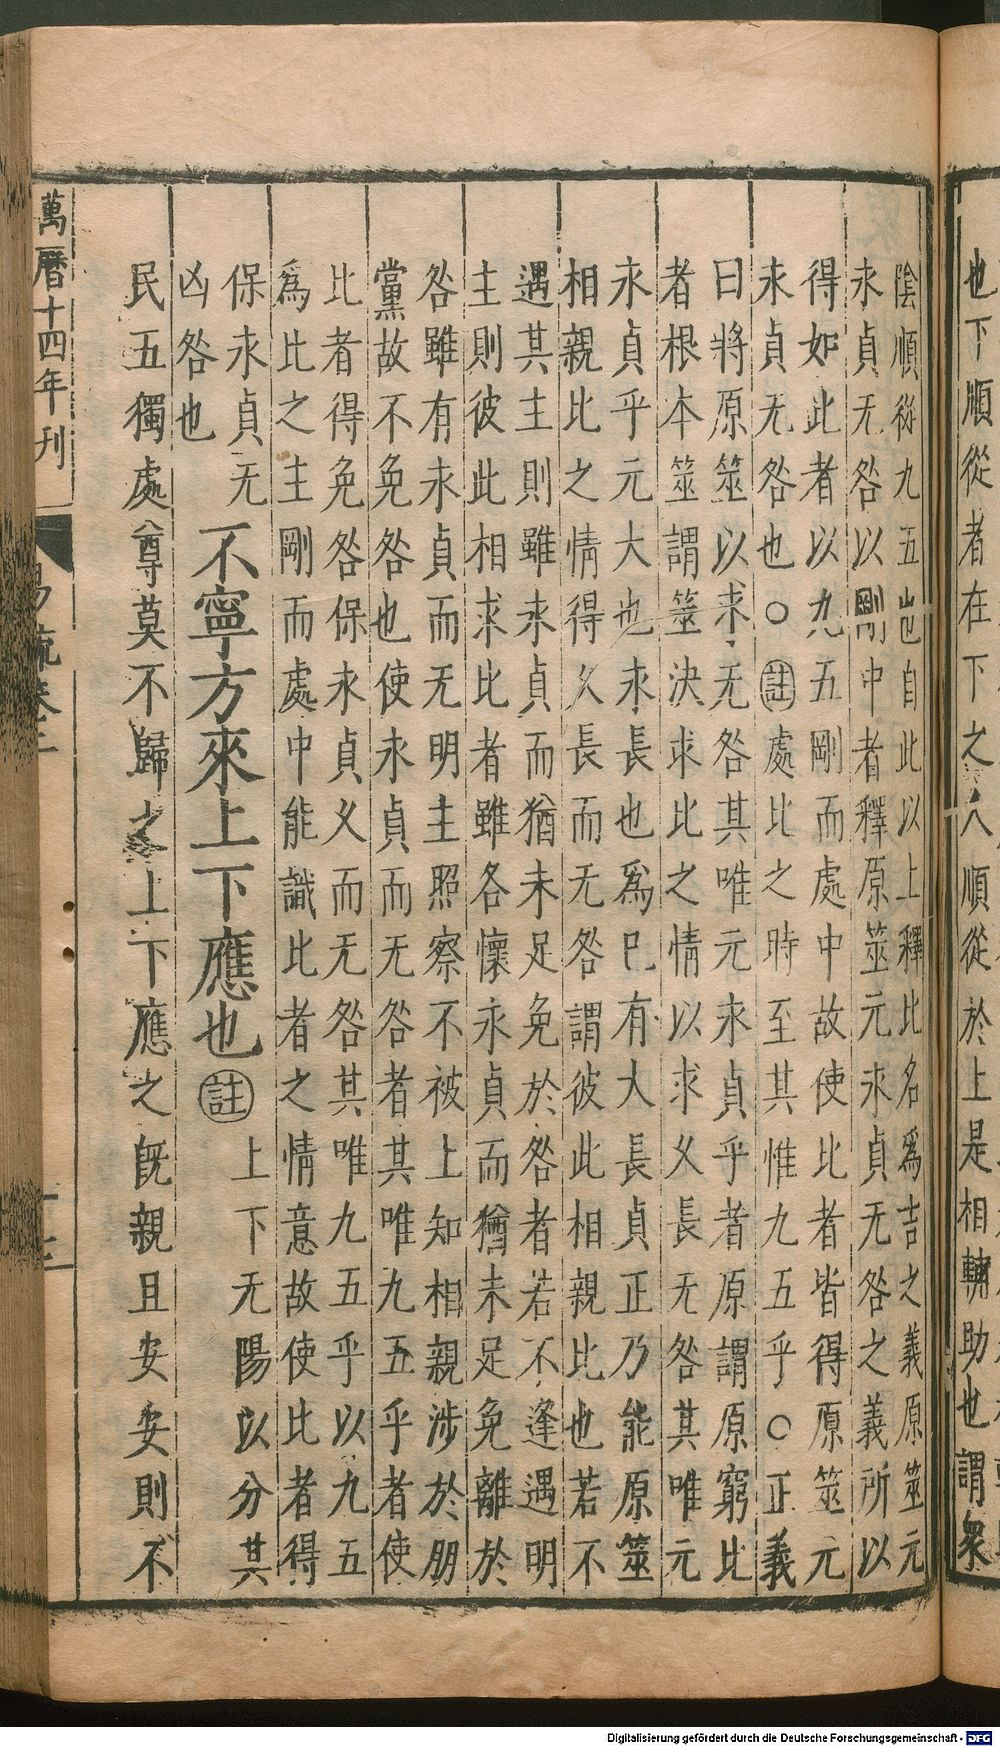 也下順從者在下之人順從於上是相輔助也謂衆
陰順從九五也自此以上釋比名爲吉之義原筮元
永貞无咎以剛中者釋原筮元永貞无咎之義所以
得如此者以九五剛而處中故使比者皆得原筮元
永貞无咎也○註處比之時至其惟九五乎○正義
曰將原筮以求无咎其唯元永貞乎者原謂原窮比
者根本筮謂筮決求比之情以求久長无咎其唯元
永貞乎元大也永長也爲巳有大長貞正乃能原筮
相親比之情得久長而无咎謂彼此相親比也若不
遇其主則雖永貞而猶未足免於咎者若不逢遇明
主則彼此相求比者雖各懷永貞而猶未足免離於
咎雖有永貞而无明主照察不被上知相親涉於朋
黨故不免咎也使永貞而无咎者其唯九五乎者使
比者得免咎保永貞久而无咎其唯九五乎以九五
爲比之主剛而處中能識比者之情意故使比者得
保永貞无
凶咎也
不寧方來上下應也註
上下无陽以分其
民五獨處尊莫不歸之上下應之既親且安安則不
萬曆十四年刊
易疏卷二
Digitalisierung gefördert durch die Deutsche Forschungsgemeinschaft - DFG